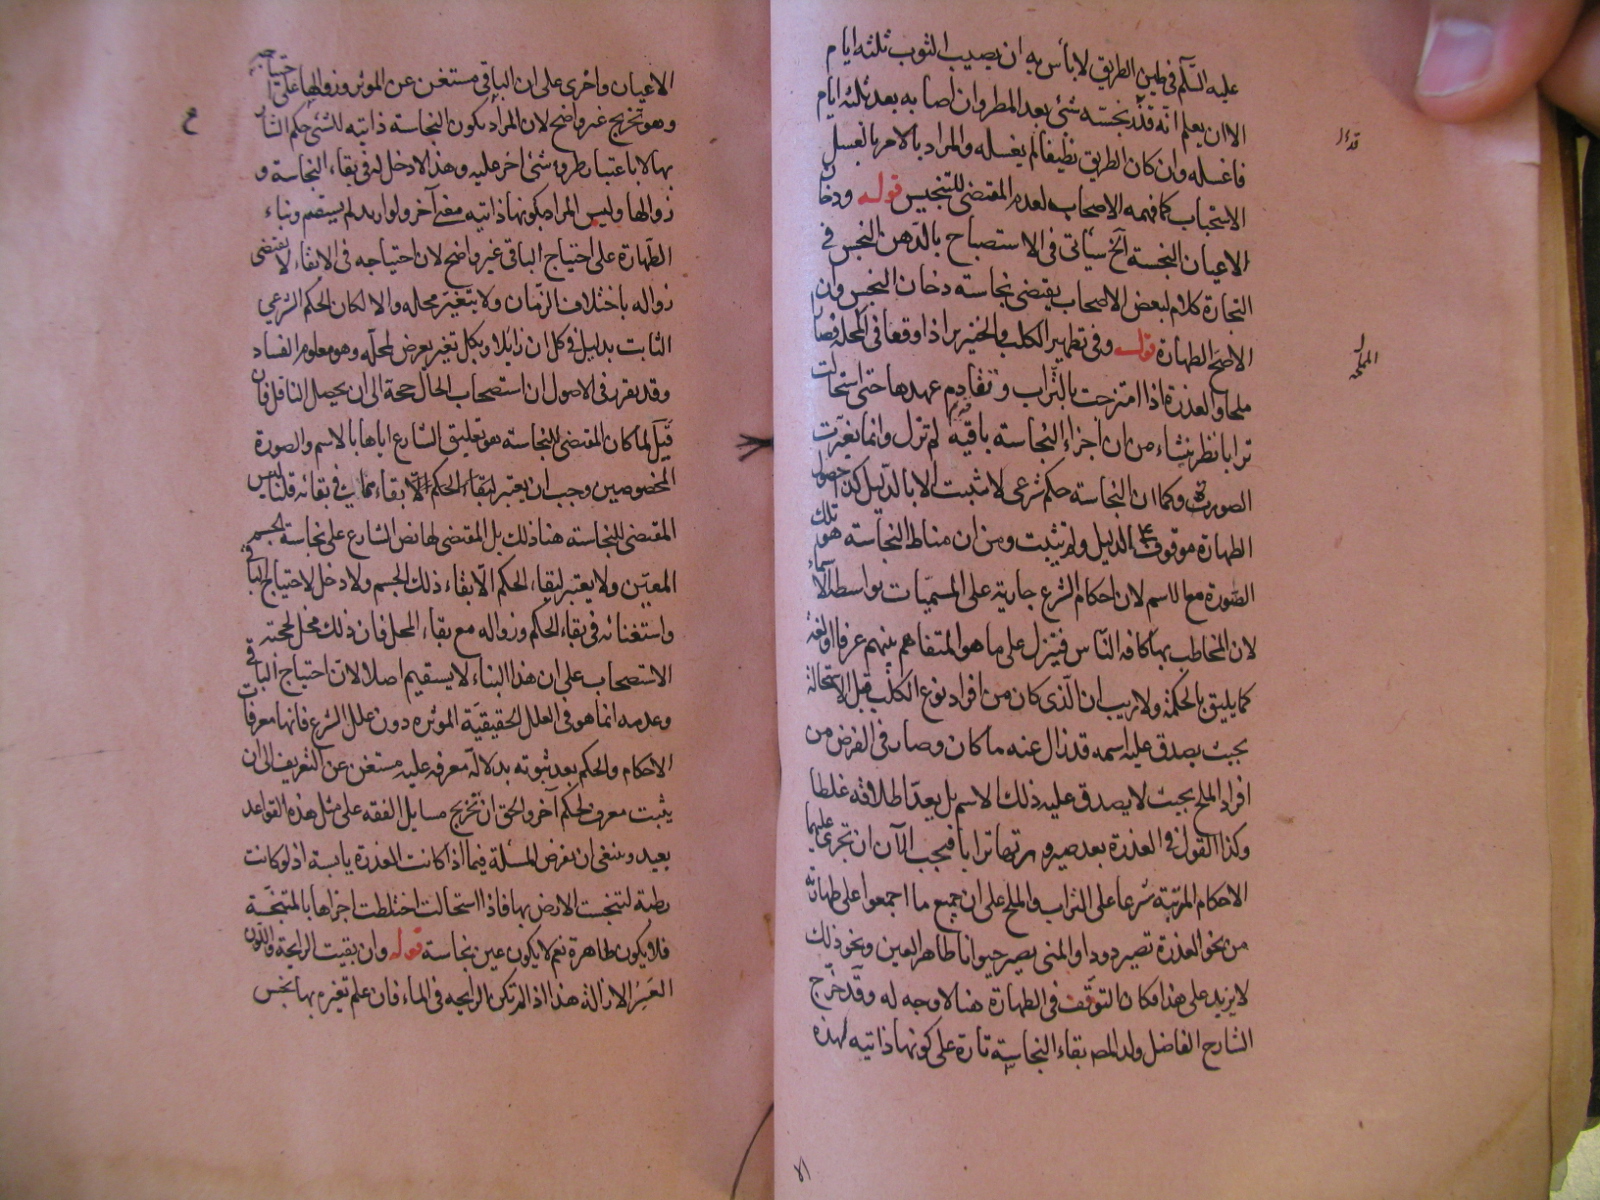 عليه السّلم في طين الطريق لا بأس به ان يصيب الثوب ثلثة ايام
الا ان يعلم انه قد نجسته شئ بعد المطر وان اصابه بعد ثلثة ايام
فاغسله وان كان الطريق نظيفا لم يغسله والمراد بالامر بالغسل
الاستحباب كما فهمه الاصحاب لعدم المقتضى للتنجيس قوله ودخان
الاعيان النجسة آلخ سيأتى في الاستصباح بالدّهن النجس في
التجارة كلام لبعض الاصحاب يقتضى نجاسة دخان النجس وان
الاصح الطهارة قوله وفى تطهير الكلب والخنزير اذا وقعا فى المملحة فصارا
ملحا والعذرة اذا امتزجت بالتّراب وتقادم عهدها حتى استحالت
ترابا نظر ينشاء من ان اجزاء النجاسة باقية لم تزل وانما تغيّرت
الصورة وكما ان النجاسة حكم شرعى لا تثبت الا بالدّليل كذا حصول
الطهارة موقوف على الدليل ولم يثبت ومن ان مناط النجاسة هو تلك
الصّورة مع الاسم لان احكام الشرع جارية على المسمّيات بواسطة الاسماء
لان المخاطب بها كافة النّاس فينزل على ما هو المتفاهم بينهم عرفا او لغة
كما يليق بالحكمة ولا ريب ان الّذى كان من افراد نوع الكلب قبل الاستحالة
بحيث يصدق عليه اسمه قد زال عنه ما كان وصار فى الفرض من
افراد الملح بحيث لا يصدق عليه ذلك الاسم بل يعدّ اطلاقه غلطا
وكذا القول فى العذرة بعد صيرورتها ترابا فيجب الآن ان تجرى عليهما
الاحكام المرتّبة شرعا على التراب والملح على ان جميع ما اجمعوا على طهارته
من نحو العذرة تصير دودا والمنى يصير حيوانا طاهر العين ونحو ذلك
لا يزيد على هذا فكان التوقّف فى الطهارة هنا لا وجه له وقد خرج
الشارح الفاضل ولد المصـ بقاء النجاسة تارة على كونها ذاتيه لهذه
قدرا
المملحـ
الاعيان واخرى على ان الباقى مستغن عن المؤثر وزوالها على احتياجه
وهو تخريج غير واضح لان المراد بكون النجاسة ذاتيه للشئ حكم الشارع
بها لا باعتبار طروء شئ اخر عليه وهذا لا دخل له فى بقاء النجاسة و
زوالها وليس المراد بكونها ذاتيه معنى آخر ولو اريد لم يستقم وبناء
الطّهارة على احتياج الباقى غير واضح لان احتياجه فى الابقاء لا يقتضى
زواله باختلاف الزّمان ولا بتغيّر محله والا لكان الحكم الشرعي
الثابت بدليل فى كل ان زايلا وبكل تغير يعرض لمحلّه وهو معلوم الفساد
وقد تقرر فى الاصول ان استصحاب الحال حجة الى ان يحصل الناقل فان
قيل لما كان المقتضى للنجاسة هو تعليق الشارع اياها بالاسم والصورة
المخصوصين وجب ان يعتبر لبقاء الحكم بقاءهما فى بقائه قلنا ليس
المقتضى للنجاسة هنا ذلك بل المقتضى لها نص الشارع على نجاسة الجسم
المعيّن ولا يعتبر لبقاء الحكم الا بقاء ذلك الجسم ولا دخل لاحتياج الباقى
واستغنائه فى بقاء الحكم وزواله مع بقاء المحل فان ذلك مخل لحجته
الاستصحاب على ان هذا البناء لا يستقيم اصلا لان احتياج الباقى
وعدمه انما هو فى العلل الحقيقيّة المؤثره دون علل الشرع فانها معرفات
الاحكام والحكم بعد ثبوته بدلالة معرفه عليه مستغن عن التعريف الى ان
يثبت معرف لحكم آخر والحق ان تخريج مسايل الفقه على مثل هذه القواعد
بعيد وينبغى ان تفرض المسئلة فيما اذا كانت العذرة يابسة اذ لو كانت
رطبة لتنجست الارض بها فاذا استحالت اختلطت اجزاها بالمتنجّسة
فلا يكون طاهرة نعم لا يكون عين نجاسة قوله وان بقيت الرايحة واللون
العسر الازالة هذا اذا لم تكن الرايحه فى الماء فان علم تغيره بها نجس